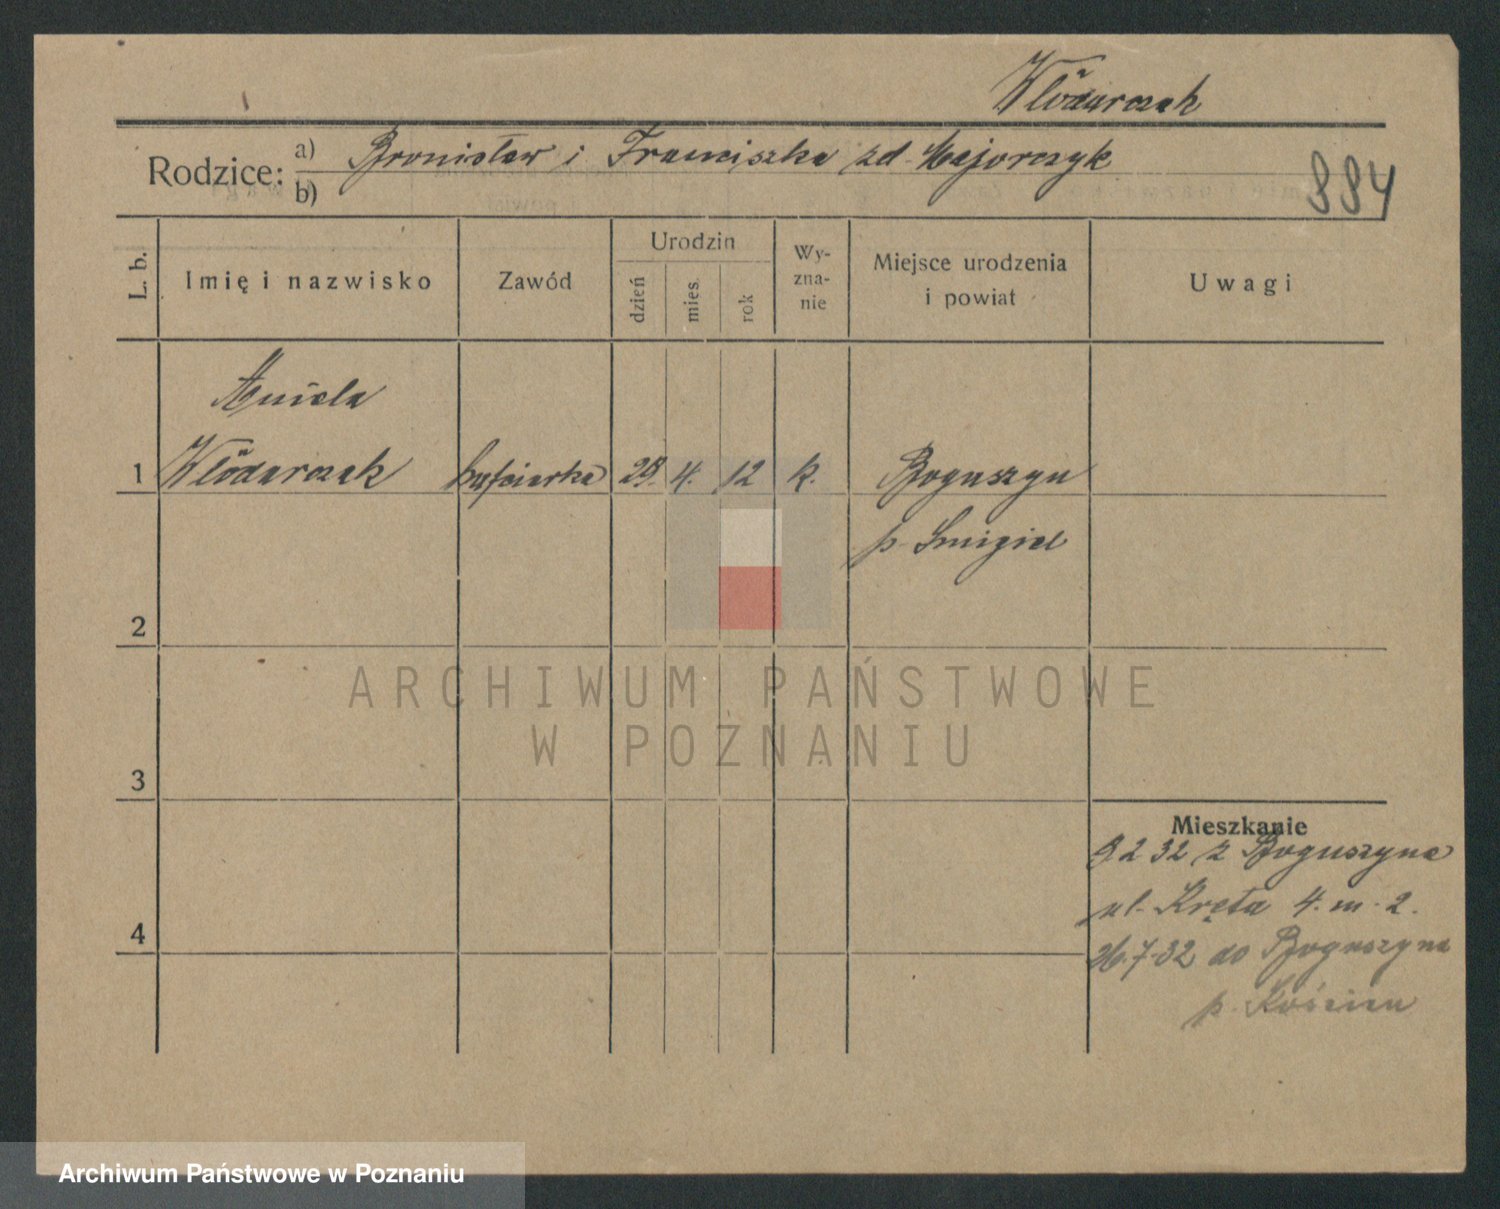 Włodarczak
Rodzice: a) Bronisław i Franciszka zd. Majorczyk
b)
884
L. b.
Imię i nazwisko
Zawód
Urodzin
dzień
mies.
rok
Wy-
zna-
nie
Miejsce urodzenia
i powiat
Uwagi
Aniela
1 Włodarczak hafciarka 4. 12 k. Boguszyn
p. Śmigiel
2
3
4
Mieszkanie
2 32 z Boguszyna
ul. Kręta 4. m. 2.
26.7.32 do Boguszyna
p. Kościan
ARCHIWUM PAŃSTWOWE
W POZNANIU
Archiwum Państwowe w Poznaniu